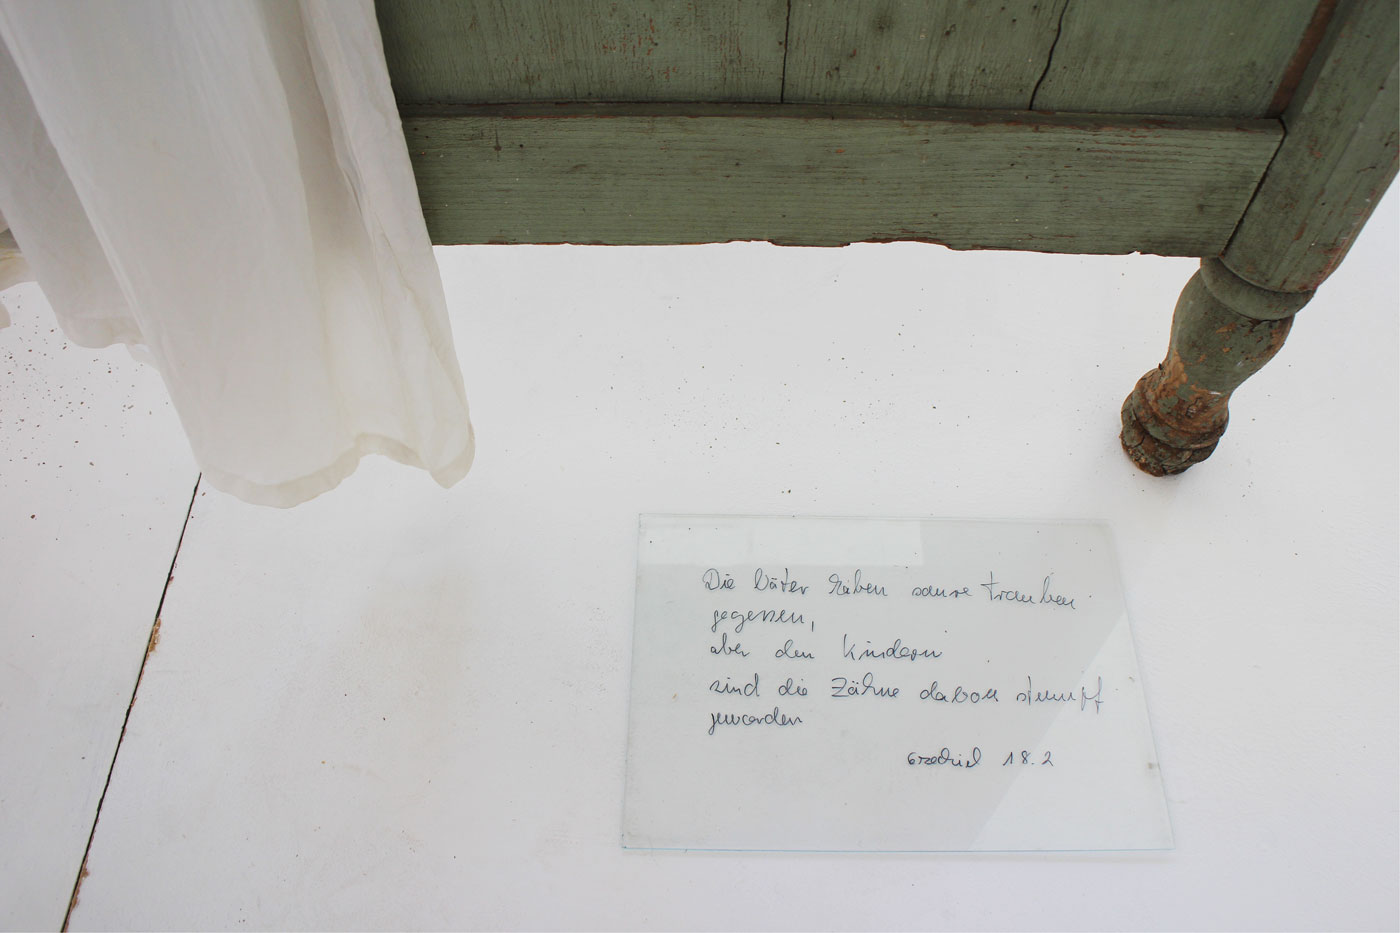 Die Väter haben saure Trauben
gegessen,
aber den Kindern
sind die Zähne davon stumpf
geworden
Ezechiel 18.2